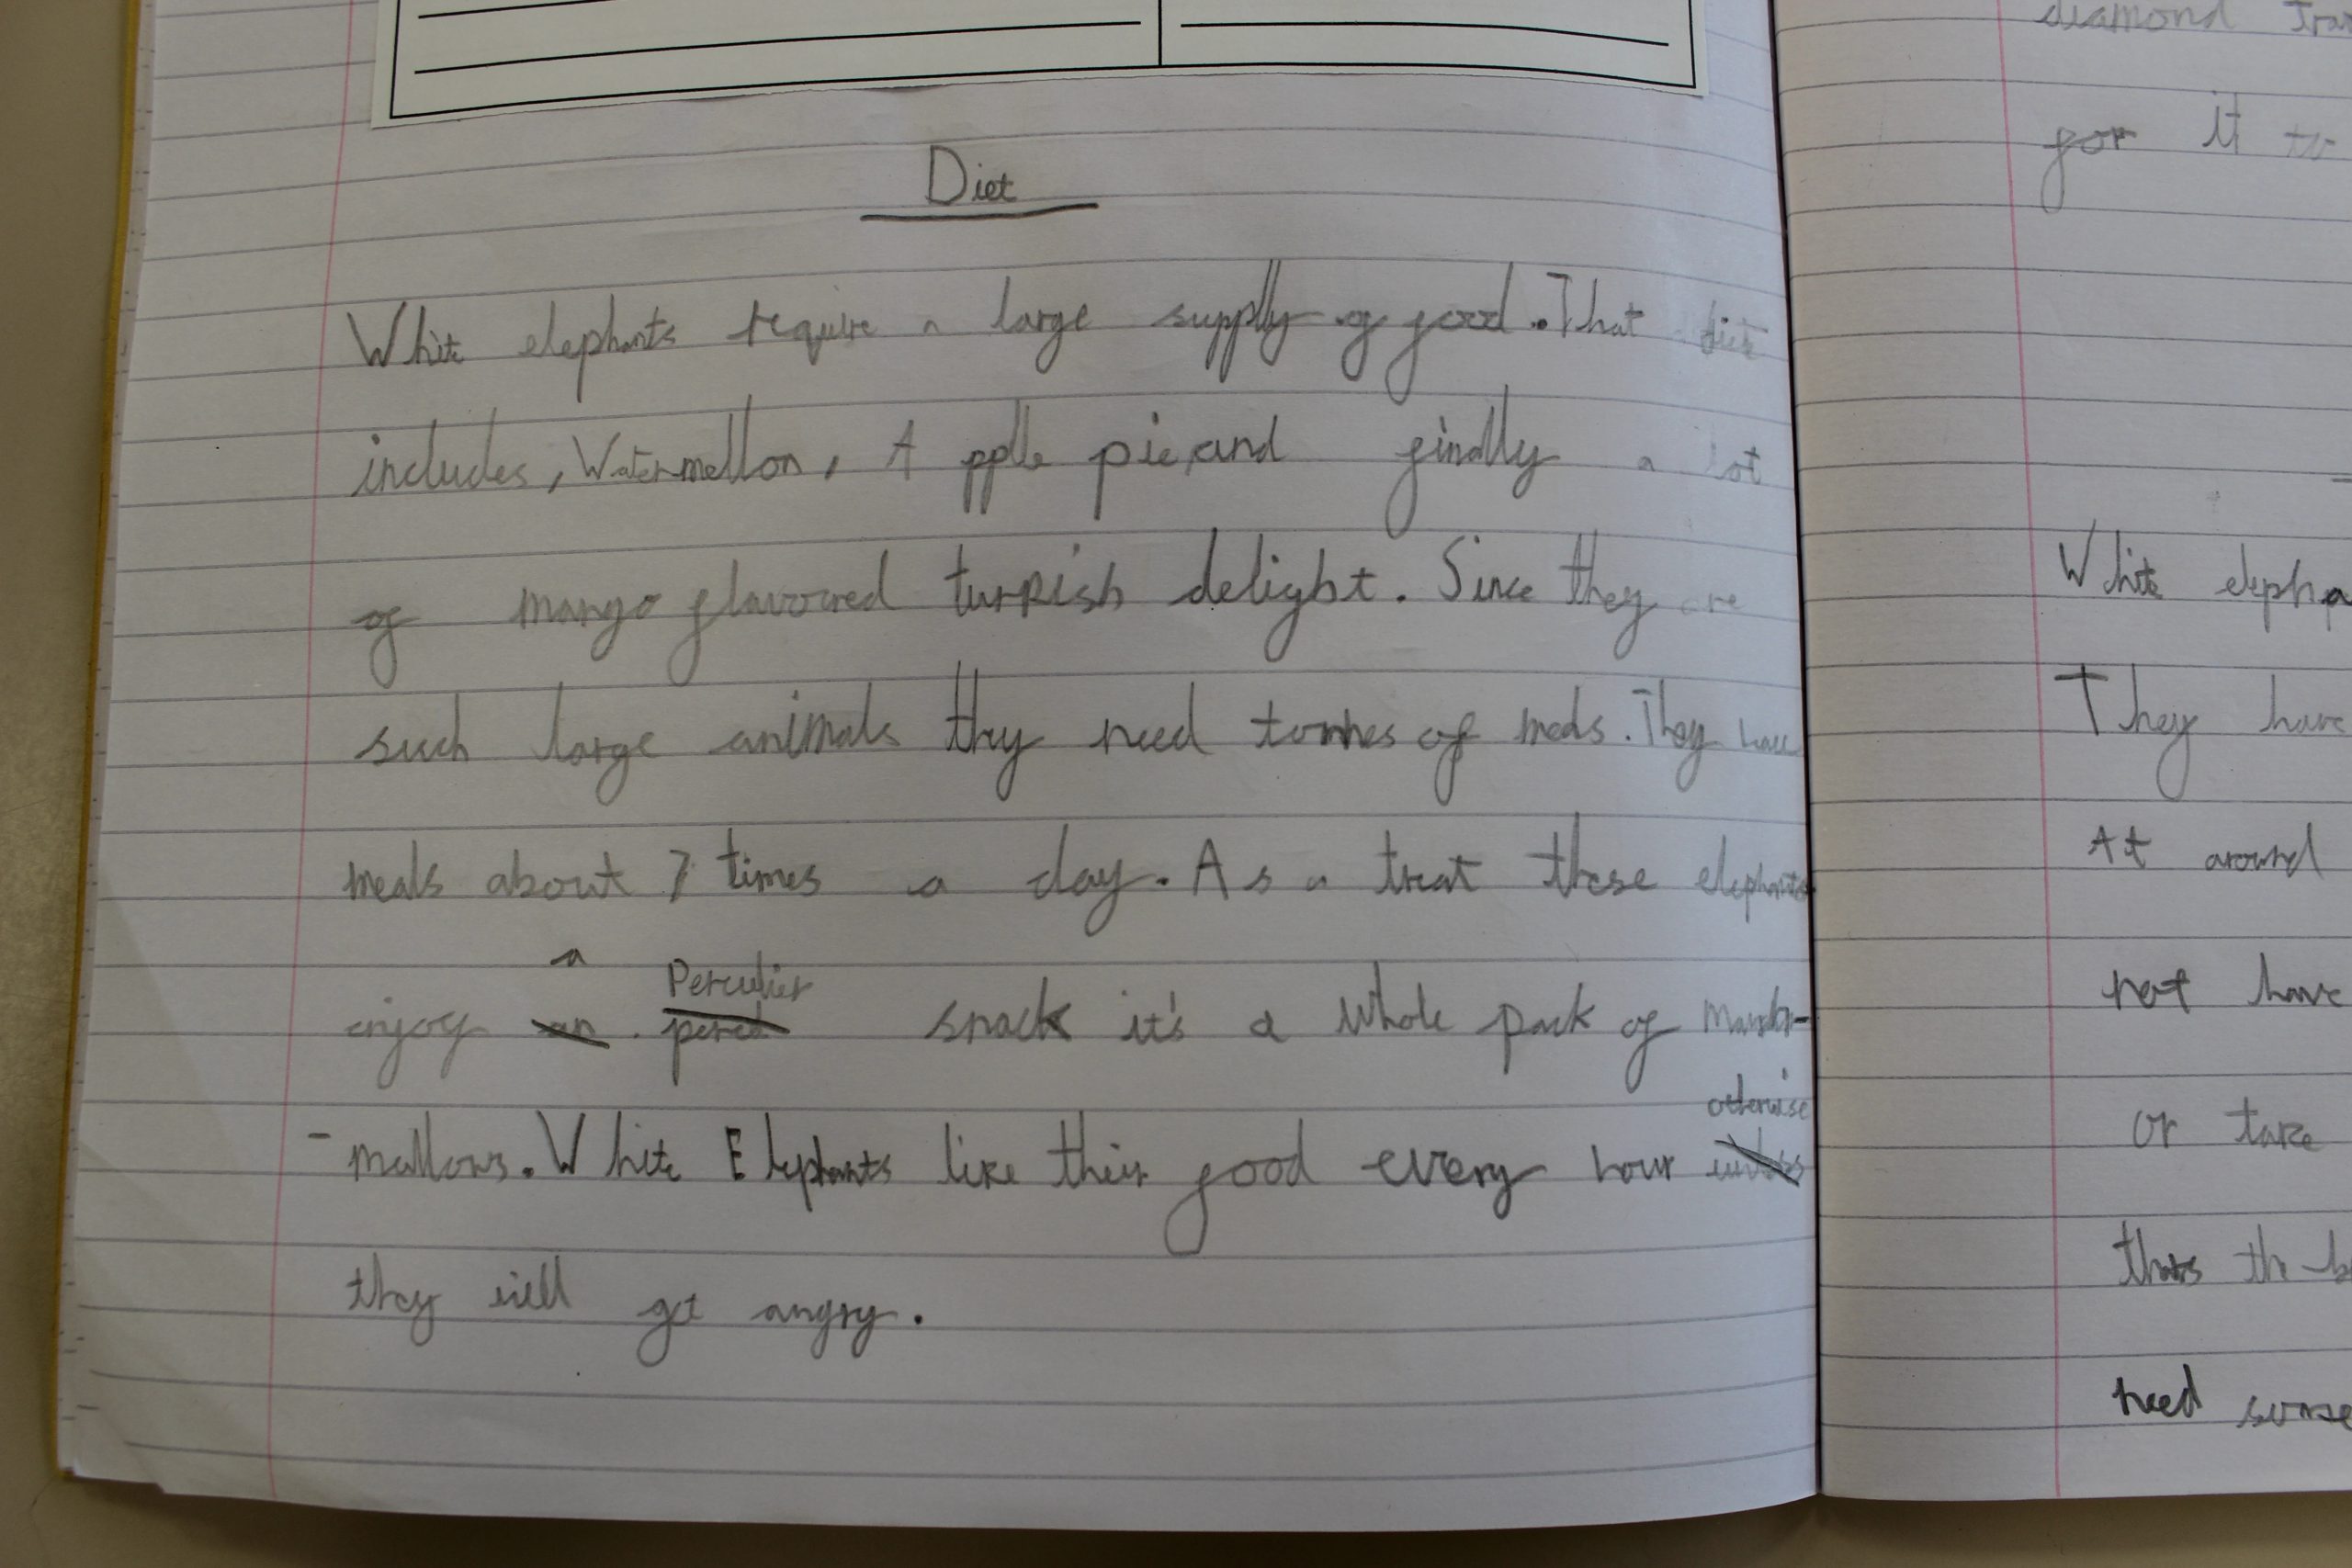 Diet
White elephants require a large supplly of food. That diet
includes, Watermellon, A pplle pie, and finally a lot
of mango flavoured turkish delight. Since they are
such large animals they need tonnes of meals. They have
meals about 7 times a day. As a treat these elephants
a Perculier
enjoy an snack it's a whole pack of Marsh-
otherwise
-mallows. White Elephants like their food every hour
they will get angry.
diamond
for it to
White elepha
They have
At around
not have
or take
need some